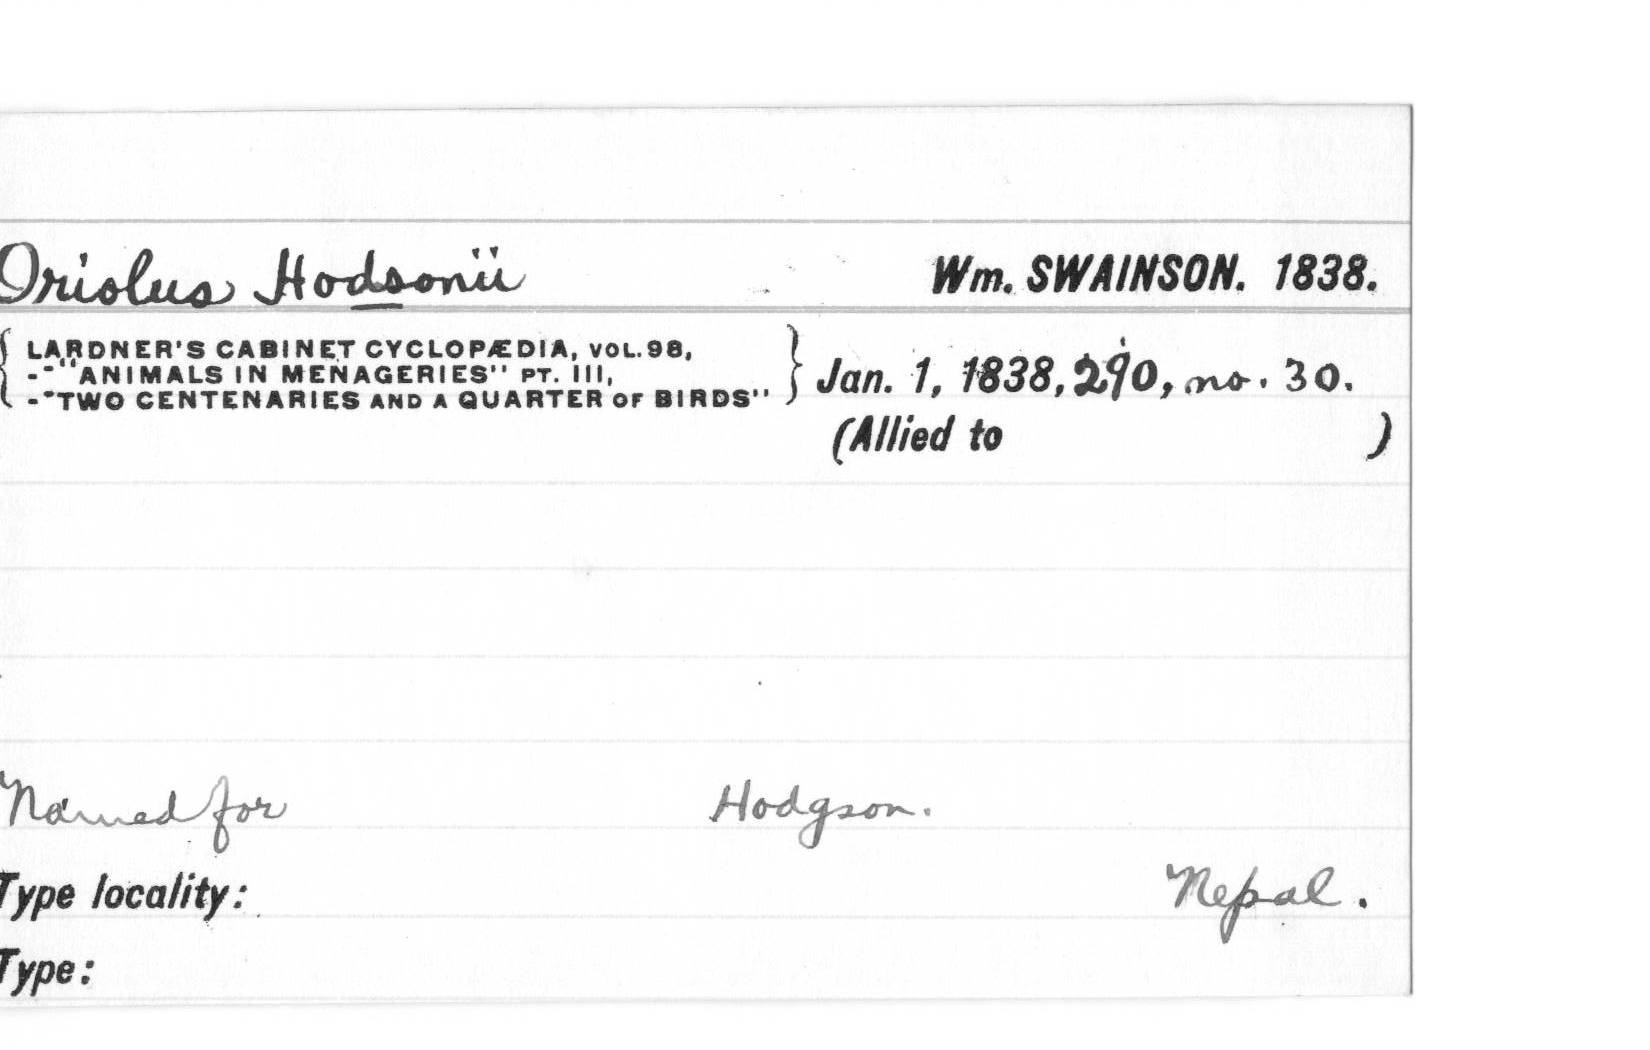 Oriolus Hodsonii Wm. SWAINSON. 1838.
LARDNER'S CABINET CYCLOPÆDIA, VOL. 98,
--"ANIMALS IN MENAGERIES" PT. III,
--"TWO CENTENARIES AND A QUARTER OF BIRDS"
Jan. 1, 1838, 290, no. 30.
(Allied to )
Named for Hodgson.
Type locality: Nepal.
Type: